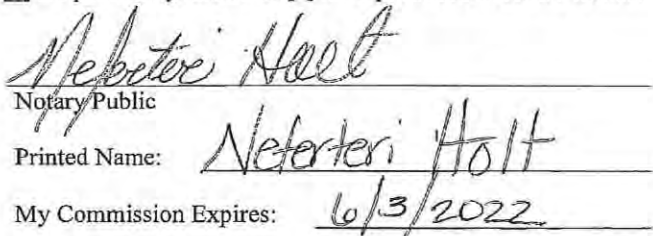 Neferteri Holt
Notary Public
Printed Name: Neferteri Holt
My Commission Expires: 6/3/2022